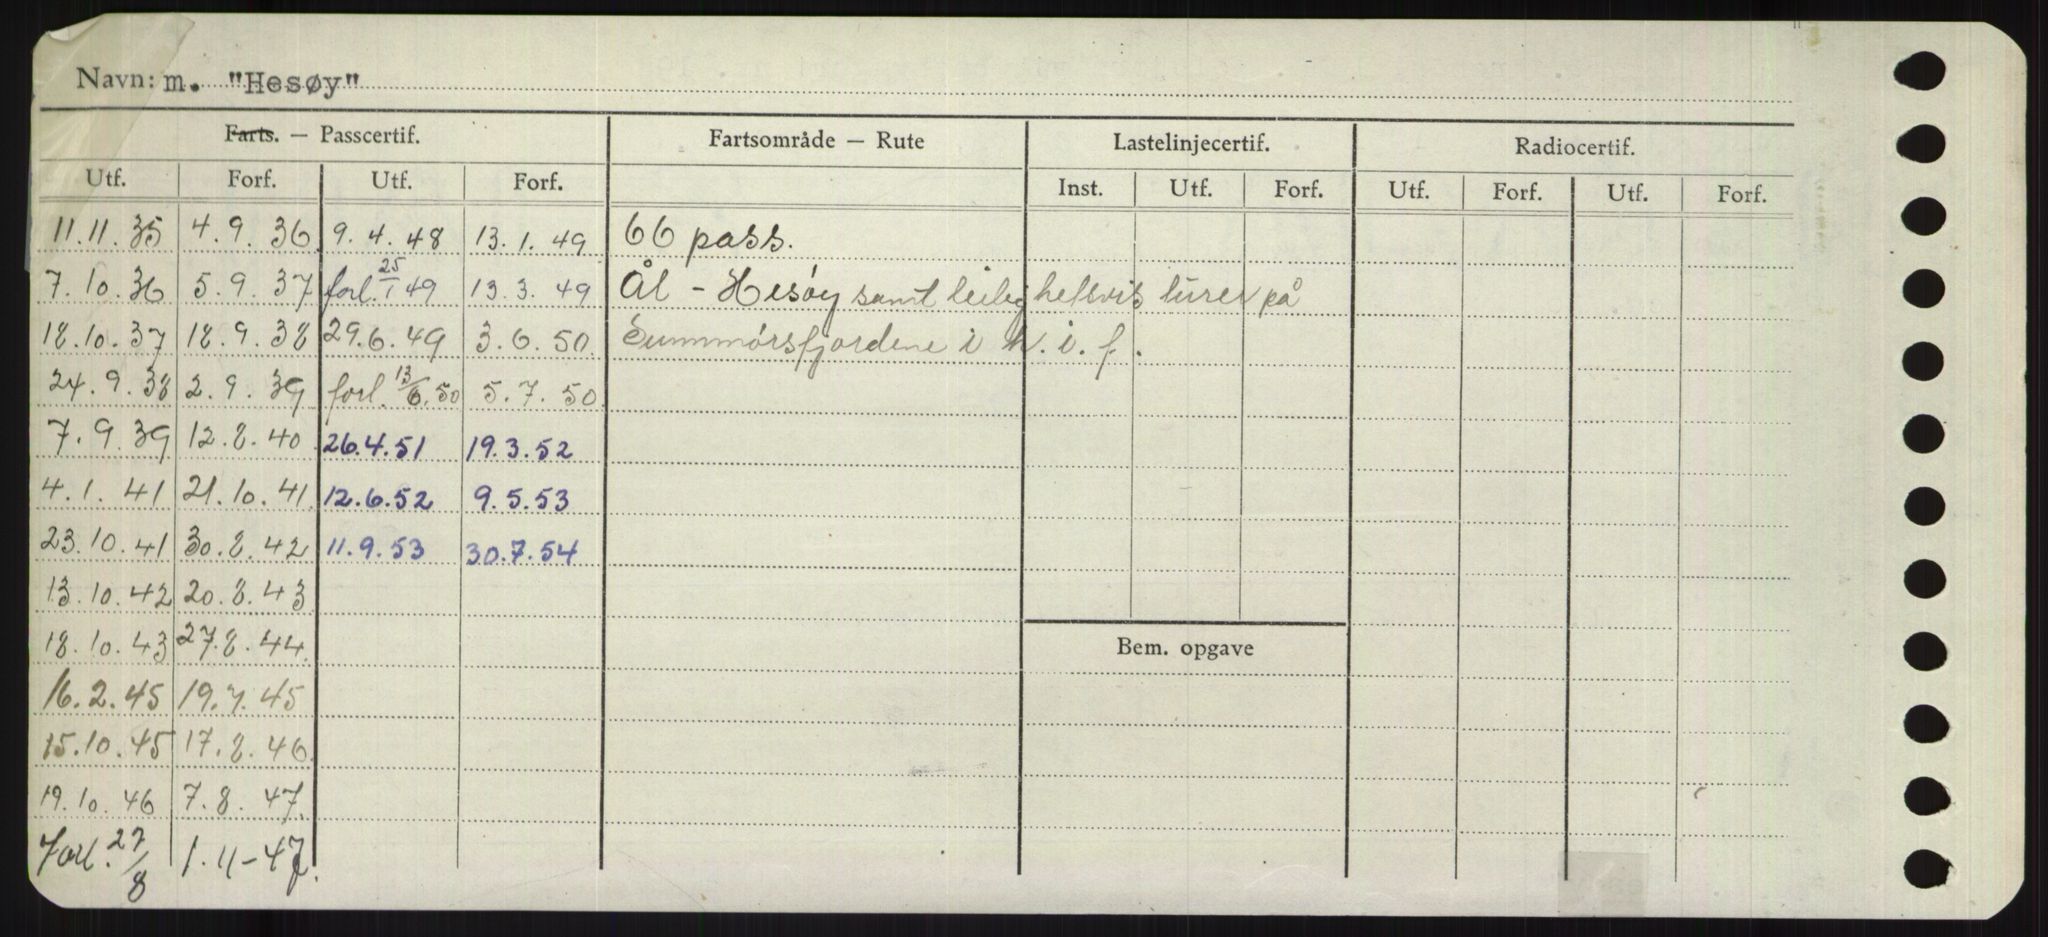 Navn: m. "Hesøy"
Farts. — Passcertif. Fartsområde — Rute Lastelinjecertif. Radiocertif.
Utf. Forf. Utf. Forf. Inst. Utf. Forf. Utf. Forf. Utf. Forf.
11.11.35 4.9.36 9.4.48 13.1.49 66 pass.
7.10.36 5.9.37 forl. 25/1 49 13.3.49 Ål - Hesøy samt leilighetsvis turer på
18.10.37 18.9.38 29.6.49 3.6.50 Sunnmørsfjordene i h.i.f.
24.9.38 2.9.39 forl. 13/6.50 5.7.50
7.9.39 12.8.40 26.4.51 19.3.52
4.1.41 21.10.41 12.6.52 9.5.53
23.10.41 30.8.42 11.9.53 30.7.54
13.10.42 20.8.43
18.10.43 27.8.44
16.2.45 19.7.45 Bem. opgave
15.10.45 17.8.46
19.10.46 7.8.47
Forl. 27/8 1.11-47.